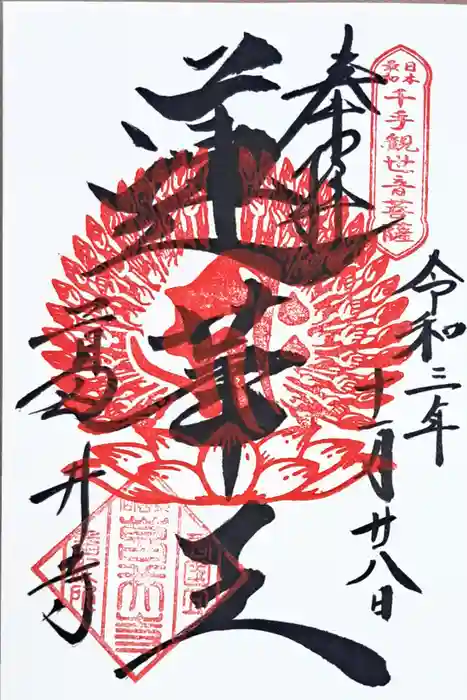 日本最初
千手觀世音菩薩
令和三年
十一月廿八日
奉拝
蓮華王
葛井寺